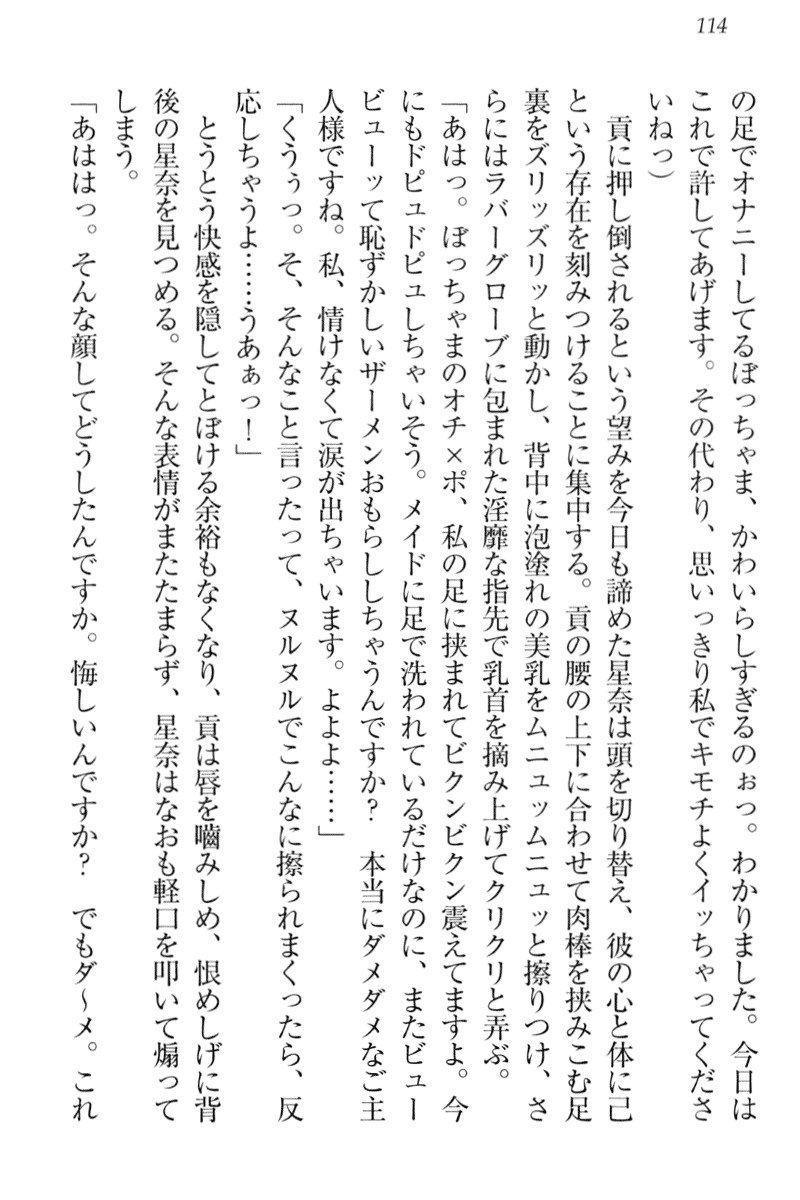 114
の足でオナニーしてるぼっちゃま、かわいらしすぎるのぉっ。わかりました。今日は
これで許してあげます。その代わり、思いっきり私でキモチよくイッちゃってくださ
いねっ）
　貢に押し倒されるという望みを今日も諦めた星奈は頭を切り替え、彼の心と体に己
という存在を刻みつけることに集中する。貢の腰の上下に合わせて肉棒を挟みこむ足
裏をズリッズリッと動かし、背中に泡塗れの美乳をムニュッムニュッと擦りつけ、さ
らにはラバーグローブに包まれた淫靡な指先で乳首を摘み上げてクリクリと弄ぶ。
「あはっ。ぼっちゃまのオチ×ポ、私の足に挟まれてビクンビクン震えてますよ。今
にもドピュドピュしちゃいそう。メイドに足で洗われているだけなのに、またビュー
ビューッて恥ずかしいザーメンおもらししちゃうんですか？　本当にダメダメなご主
人様ですね。私、情けなくて涙が出ちゃいます。よよよ……」
「くうぅっ。そ、そんなこと言ったって、ヌルヌルでこんなに擦られまくったら、反
応しちゃうよ……うあぁっ！」
　とうとう快感を隠してとぼける余裕もなくなり、貢は唇を嚙みしめ、恨めしげに背
後の星奈を見つめる。そんな表情がまたたまらず、星奈はなおも軽口を叩いて煽って
しまう。
「あははっ。そんな顔してどうしたんですか。悔しいんですか？　でもダ～メ。これ